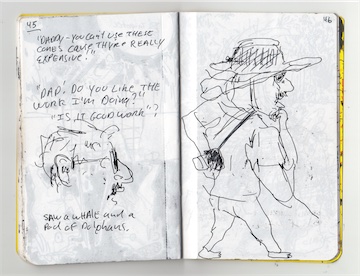 45
"DADDY - YOU CAN'T USE THESE
CONES CAUSE THY'RE REALLY
EXPENSIVE."
"DAD! DO YOU LIKE THE
WORK I'M DOING?"
"IS IT GOOD WORK"?
SAW A WHALE and a
Pod of Dolphans.
46